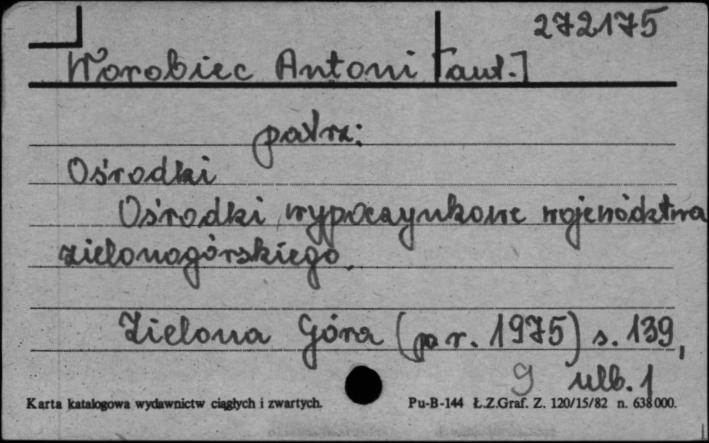 272175
Worobiec Antoni [aut.]
patrz:
Ośrodki
Ośrodki wypoczynkowe województwa
zielonogórskiego.
Zielona Góra (po r. 1975) s. 139,
9 ulb. 1
Karta katalogowa wydawnictw ciągłych i zwartych. Pu-B-144 Ł.Z.Graf. Z. 120/15/82 n. 638000.